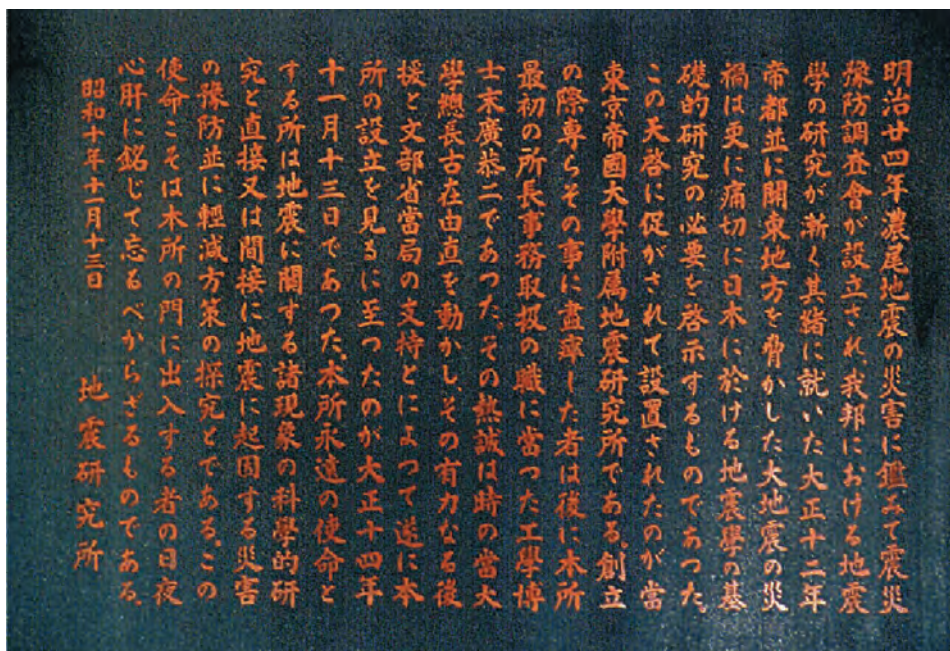 明治廿四年濃尾地震の災害に鑑みて震災
豫防調査會が設立され、我邦における地震
學の研究が漸く其緒に就いた大正十二年
帝都並に關東地方を脅かした大地震の災
禍は更に痛切に日本に於ける地震學の基
礎的研究の必要を啓示するものであつた。
この天啓に促がされて設置されたのが當
東京帝國大學附属地震研究所である。創立
の際専らその事に盡瘁した者は後に本所
最初の所長事務取扱の職に當つた工學博
士末廣恭二であつた。その熱誠は時の當大
學總長古在由直を動かし、その有力なる後
援と文部省當局の支持とによつて遂に本
所の設立を見るに至つたのが大正十四年
十一月十三日であつた。本所永遠の使命と
する所は地震に關する諸現象の科學的研
究と直接又は間接に地震に起因する災害
の豫防並に輕減方策の探究とである。この
使命こそは本所の門に出入する者の日夜
心肝に銘じて忘るべからざるものである。
昭和十年十一月十三日　地震研究所